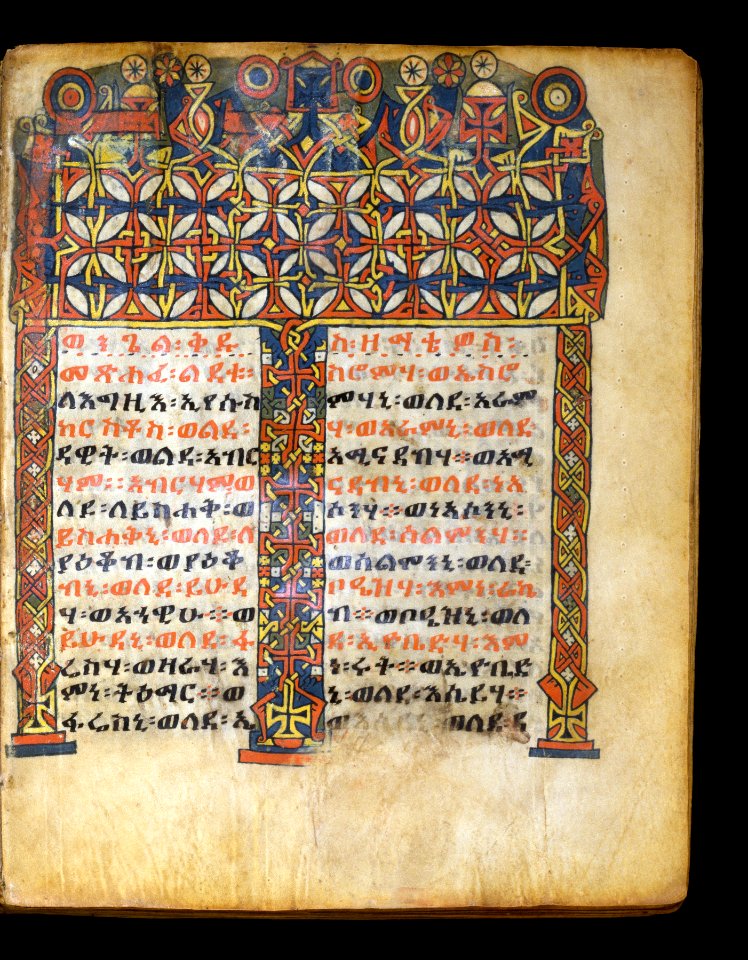 ወንጌል፡ቅዱ
መጽሐፈ፡ልደቱ፡፡
ለእግዚእ፡ኢየሱስ
ክርስቶስ፡ወልደ፡
ዳዊት፡ወልደ፡አብር
ሃም፡፡አብርሃምወ
ለደ፡ለይስሐቅ፡ወ
ይስሐቅኒ፡ወለደ፡ለ
ያዕቆብ፡ወያዕቆ
ብኒ፡ወለደ፡ይሁዳ
ሃ፡ወአኀዊሁ፡፡ወ
ይሁዳኒ፡ወለደ፡ፋ
ሬስሃ፡ወዛራሃ፡እ
ምነ፡ትዕማር፡፡ወ
ፋሬስኒ፡ወለደ፡ኤ
ስ፡ዘማቴዎስ፡
ስሮምሃ፡ወኤስሮ
ምሃኒ፡ወለደ፡አራም
ሃ፡ወአራምኒ፡ወለደ፡
አሚናዳብሃ፡፡ወአሚ
ናዳብኒ፡ወለደ፡ነአ
ሶንሃ፡፡ወነአሶንኒ፡
ወለደ፡ሰልሞንሃ፡፡
ወሰልሞንኒ፡ወለደ፡
ቦዔዝሃ፡እምነ፡ራኬ
ብ፡፡ወቦዔዝኒ፡ወለ
ደ፡ኢዮቤድሃ፡እም
ነ፡ሩት፡፡ወኢዮቤድ
ኒ፡ወለደ፡እሴይሃ፡፡
ወለደ፡ዳ